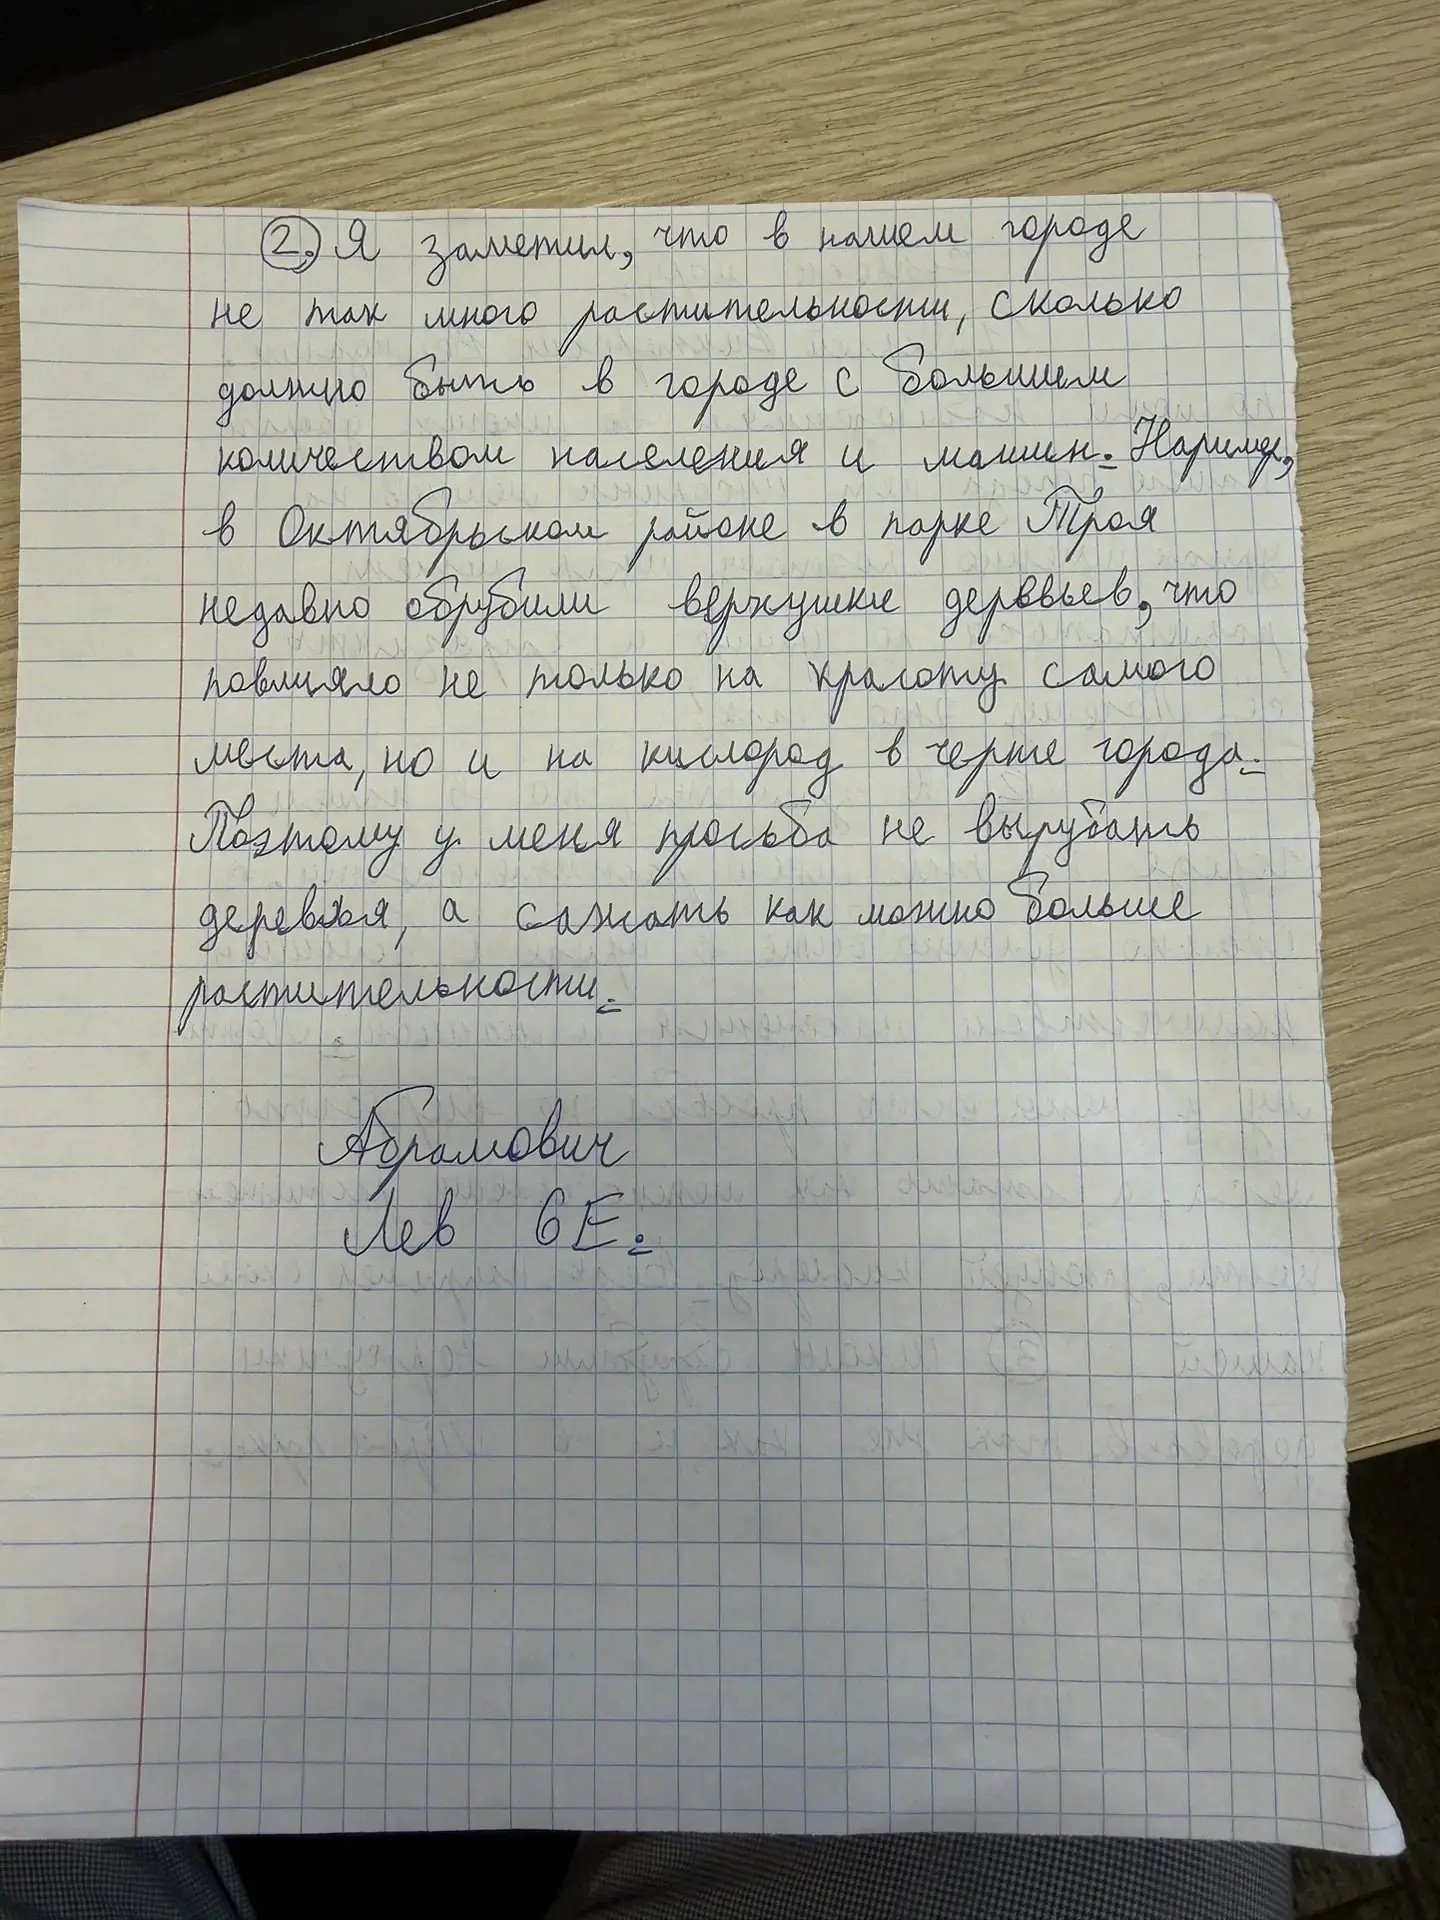 2. Я заметил, что в нашем городе
не так много растительности, сколько
должно быть в городе с большим
количеством населения и машин. Например,
в Октябрьском районе в парке Троя
недавно обрубили верхушки деревьев, что
повлияло не только на красоту самого
места, но и на кислород в черте города.
Поэтому у меня просьба не вырубать
деревья, а сажать как можно больше
растительности.
Абрамович
Лев 6Е.